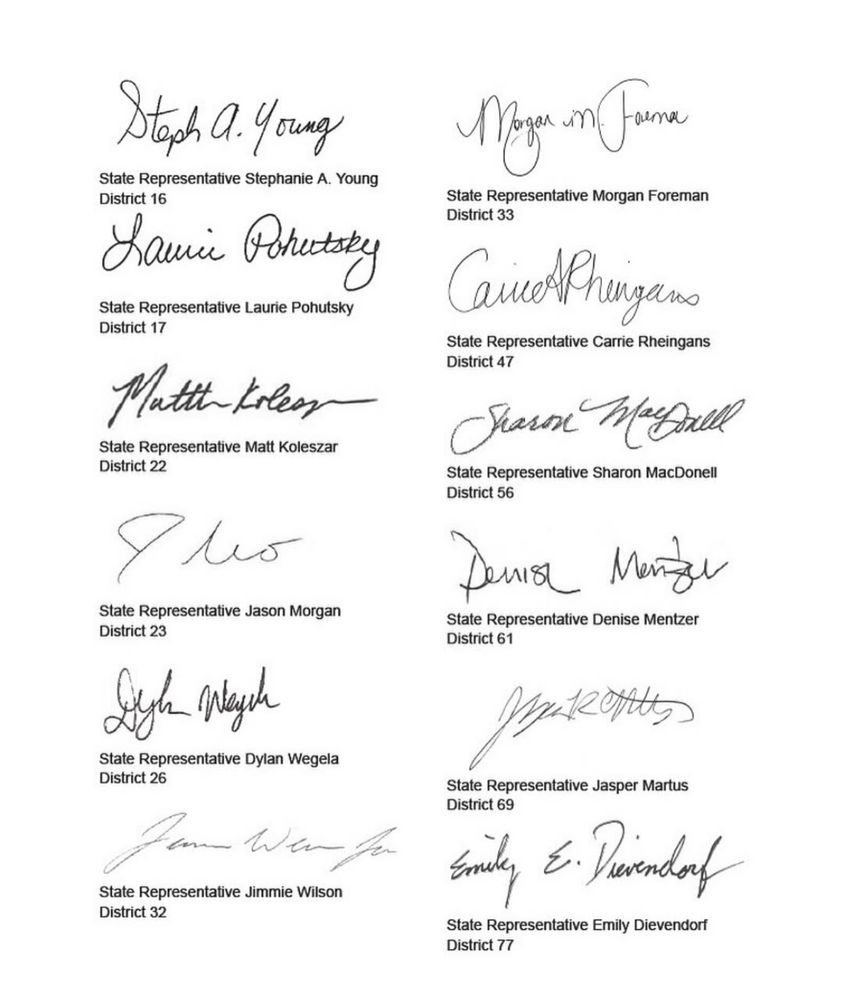 Steph A. Young
State Representative Stephanie A. Young
District 16
Laurie Pohutsky
State Representative Laurie Pohutsky
District 17
Matt Koleszar
State Representative Matt Koleszar
District 22
State Representative Jason Morgan
District 23
Dylan Wegela
State Representative Dylan Wegela
District 26
State Representative Jimmie Wilson
District 32
Morgan M. Foreman
State Representative Morgan Foreman
District 33
Carrie A Rheingans
State Representative Carrie Rheingans
District 47
Sharon MacDonell
State Representative Sharon MacDonell
District 56
Denise Mentzer
State Representative Denise Mentzer
District 61
State Representative Jasper Martus
District 69
Emily E. Dievendorf
State Representative Emily Dievendorf
District 77